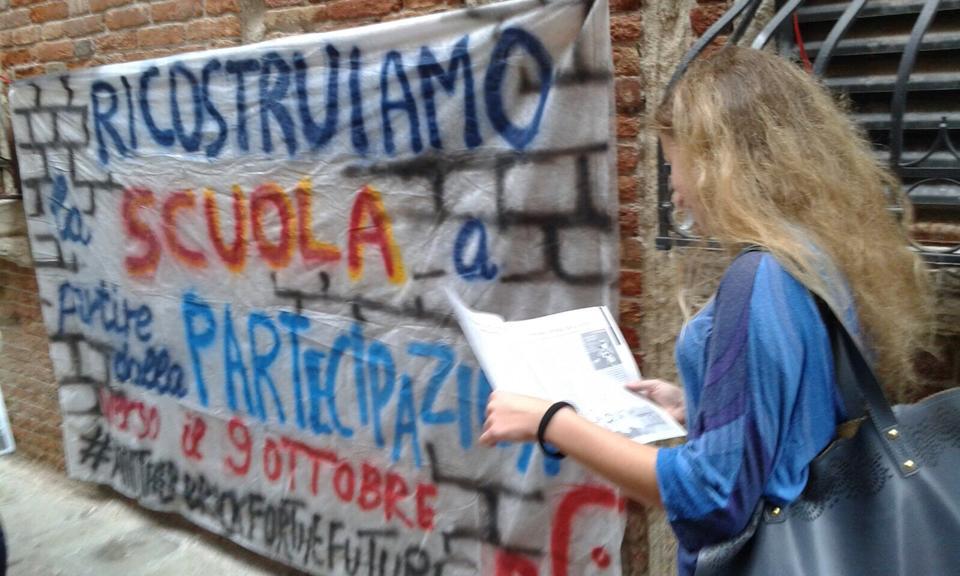 RICOSTRUIAMO
la SCUOLA a
partire dalla PARTECIPAZI
verso il 9 OTTOBRE
#ANOTHERBRICKFORTHEFUTUR